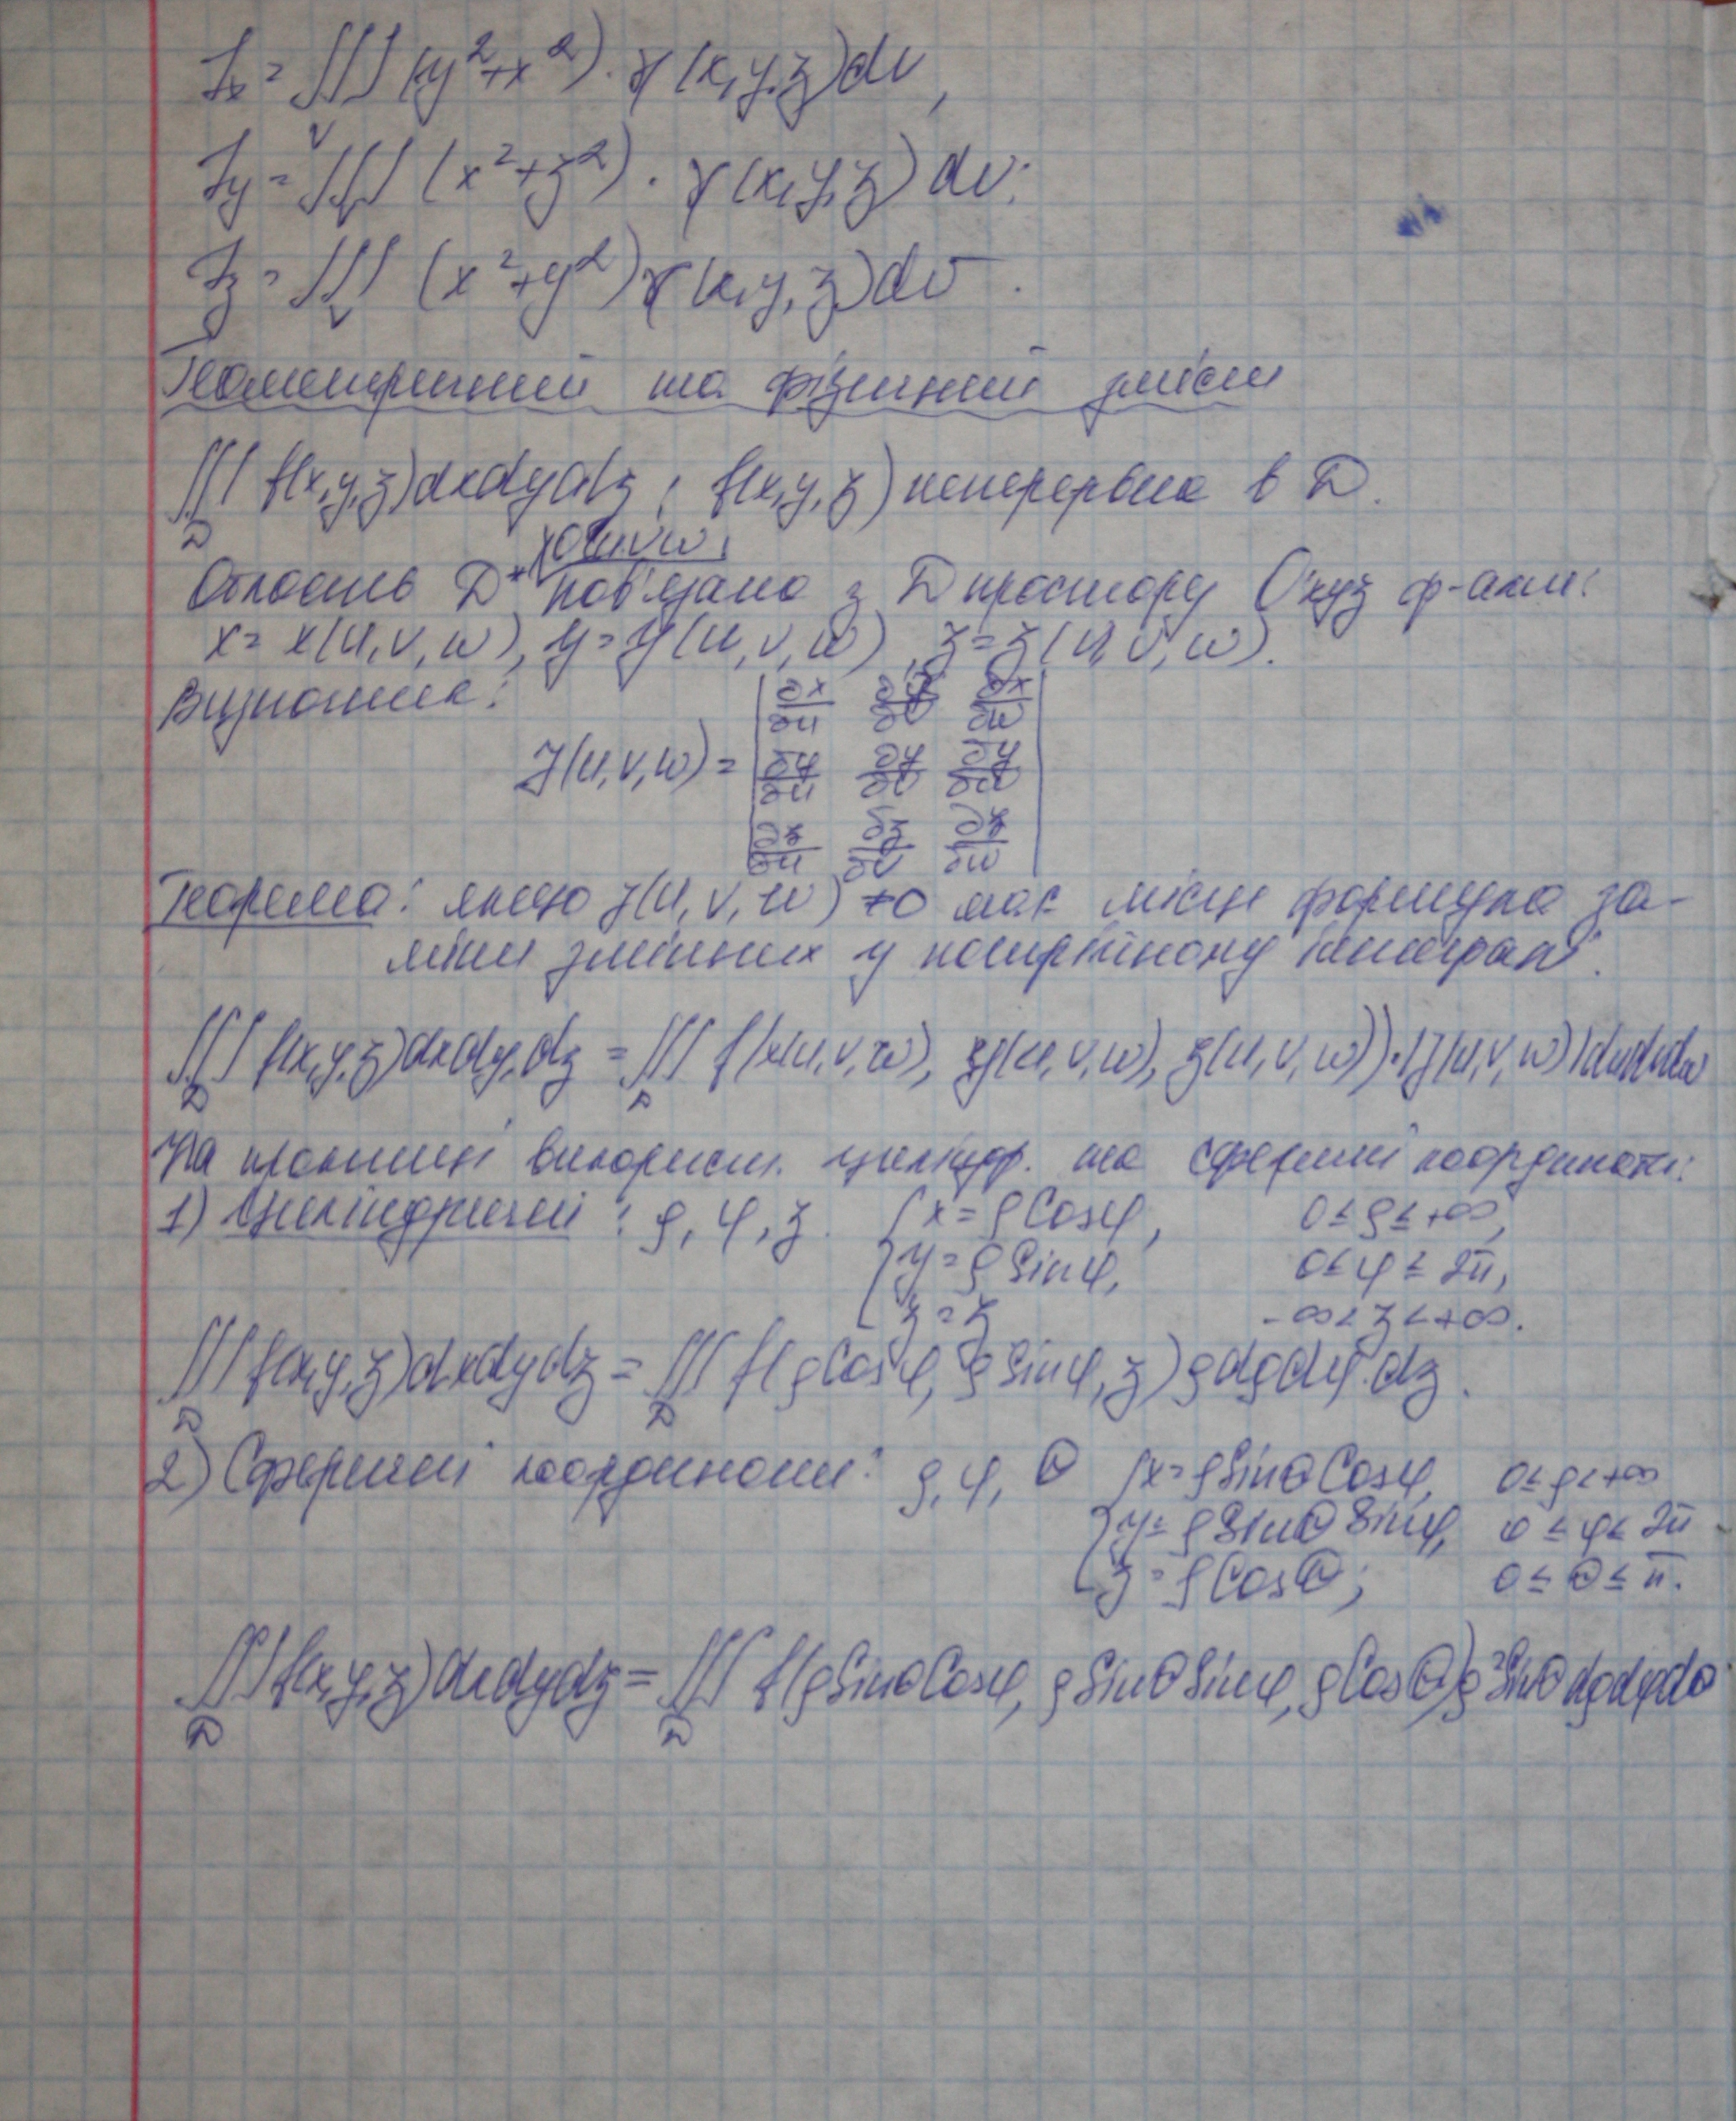 Jx = ∭ (y²+x²)·γ(x,y,z)dv,
V
Jy = ∭ (x²+z²)·γ(x,y,z)dv;
V
Jz = ∭ (x²+y²)γ(x,y,z)dv.
V
Геометричний та фізичний зміст
∭ f(x,y,z)dxdydz; f(x,y,z) неперервна в D.
D
Ouvw
Область D* пов'язана з D простору Oxyz ф-ами:
x = x(u,v,w), y = y(u,v,w), z = z(u,v,w).
Визначник:
∂x/∂u ∂x/∂v ∂x/∂w
J(u,v,w) = ∂y/∂u ∂y/∂v ∂y/∂w
∂z/∂u ∂z/∂v ∂z/∂w
Теорема: якщо J(u,v,w) ≠0 має місце формула за-
міни змінних у потрійному інтегралі.
∭ f(x,y,z)dxdydz = ∭ f(x(u,v,w), y(u,v,w), z(u,v,w))·|J(u,v,w)|dudvdw
D D
На використ. циліндр. та сферичні координати:
1) Циліндричні: ρ, φ, z. { x = ρCosφ, 0 ≤ ρ ≤ +∞,
y = ρSinφ, 0 ≤ φ ≤ 2π,
z = z -∞ < z < +∞.
∭ f(x,y,z)dxdydz = ∭ f(ρCosφ, ρSinφ, z)ρdρdφ·dz.
D D
2) Сферичні координати: ρ, φ, Θ { x = ρSinΘCosφ, 0 ≤ ρ < +∞
y = ρSinΘSinφ, 0 ≤ φ ≤ 2π
z = ρCosΘ; 0 ≤ Θ ≤ π.
∭ f(x,y,z)dxdydz = ∭ f(ρSinΘCosφ, ρSinΘSinφ, ρCosΘ)ρ²SinΘdρdφdΘ
D D